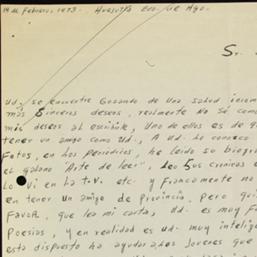 14 de Febrero, 1973. Huesitfo Eco. de Ago.
Sr.
Ud, se encuentre Gozando de Una salud
más Sinceros deseos, realmente No sé com
mis deseos al escribirle, Uno de ellos es de q
tener un amigo como Ud., A Ud. Lo conozco
Fotos, en los Periódicos, he leído su biogra
el galano "Arte de leer", Leo Sus Cronicas e
Lo vi en La t.v. etc. y Francamente no
en tener un amigo de Provincia, Pero qui
Favor, que lea mi carta, Ud. es muy F
Poesias, y en realidad es ud. muy intelige
esta dispuesto ha ayudar a los Jovenes que